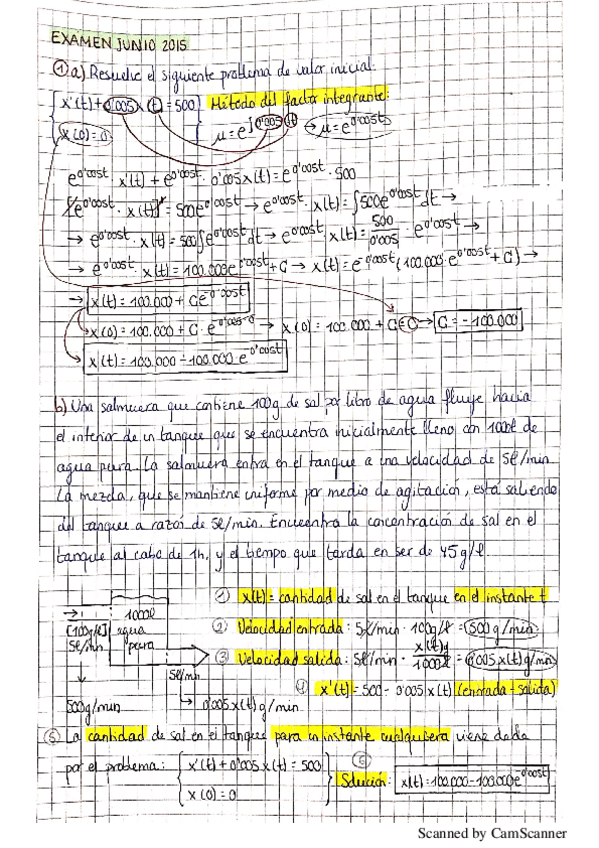 EXAMEN JUNIO 2015
① a) Resuelve el siguiente problema de valor inicial.
{ x'(t) + 0'005 x(t) = 500 } Método del factor integrante:
x(0) = 0 μ = e^∫0'005 dt → μ = e^0'005t
e^0'005t · x'(t) + e^0'005t · 0'005x(t) = e^0'005t · 500
[e^0'005t · x(t)]' = 500e^0'005t → e^0'005t · x(t) = ∫500e^0'005t dt →
→ e^0'005t · x(t) = 500∫e^0'005t dt → e^0'005t · x(t) = 500/0'005 · e^0'005t →
→ e^0'005t · x(t) = 100.000e^0'005t + C → x(t) = e^-0'005t (100.000 · e^0'005t + C) →
→ x(t) = 100.000 + Ce^-0'005t
x(0) = 100.000 + C · e^-0'005·0 → x(0) = 100.000 + C = 0 → C = -100.000
x(t) = 100.000 - 100.000 e^-0'005t
b) Una salmuera que contiene 100g de sal por litro de agua fluye hacia
el interior de un tanque que se encuentra inicialmente lleno con 1000l de
agua pura. La salmuera entra en el tanque a una velocidad de 5l/min.
La mezcla, que se mantiene uniforme por medio de agitación, está saliendo
del tanque a razón de 5l/min. Encuentra la concentración de sal en el
tanque al cabo de 1h. y el tiempo que tarda en ser de 45g/l
① x(t) = cantidad de sal en el tanque en el instante t
1000l
[100g/l] agua pura
5l/min
② Velocidad entrada: 5l/min · 100g/l = 500g/min
③ Velocidad salida: 5l/min · x(t)g/1000l = 0'005x(t)g/min
5l/min
④ x'(t) = 500 - 0'005x(t) (entrada - salida)
500g/min 0'005x(t)g/min
⑤ La cantidad de sal en el tanque para un instante cualquiera viene dada
por el problema: { x'(t) + 0'005x(t) = 500
x(0) = 0
⑥ Solución: x(t) = 100.000 - 100.000e^-0'005t
Scanned by CamScanner